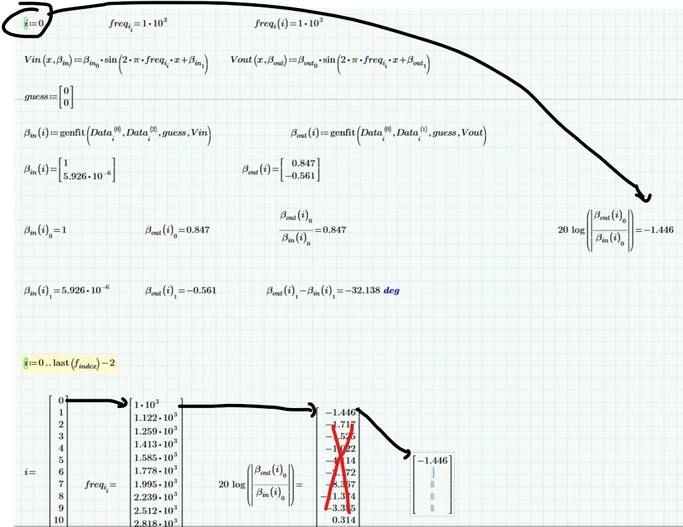 i:=0 freq_{i_i}=1•10³ freq_i(i)=1•10³
Vin(x,β_in):=β_in_0•sin(2•π•freq_{i_i}•x+β_in_1) Vout(x,β_out):=β_out_0•sin(2•π•freq_{i_i}•x+β_out_1)
guess:=[0
0]
β_in(i):=genfit(Data_i^⟨0⟩,Data_i^⟨2⟩,guess,Vin) β_out(i):=genfit(Data_i^⟨0⟩,Data_i^⟨1⟩,guess,Vout)
β_in(i)=[1 β_out(i)=[0.847
5.926•10⁻⁶] −0.561]
β_in(i)_0=1 β_out(i)_0=0.847 β_out(i)_0/β_in(i)_0=0.847 20 log(|β_out(i)_0/β_in(i)_0|)=−1.446
β_in(i)_1=5.926•10⁻⁶ β_out(i)_1=−0.561 β_out(i)_1−β_in(i)_1=−32.138 deg
i:=0..last(f_index)−2
i=
0
1
2
3
4
5
6
7
8
9
10
freq_{i_i}=
1•10³
1.122•10³
1.259•10³
1.413•10³
1.585•10³
1.778•10³
1.995•10³
2.239•10³
2.512•10³
2.818•10³
20 log(|β_out(i)_0/β_in(i)_0|)=
−1.446
−1.717
0.314
−1.446